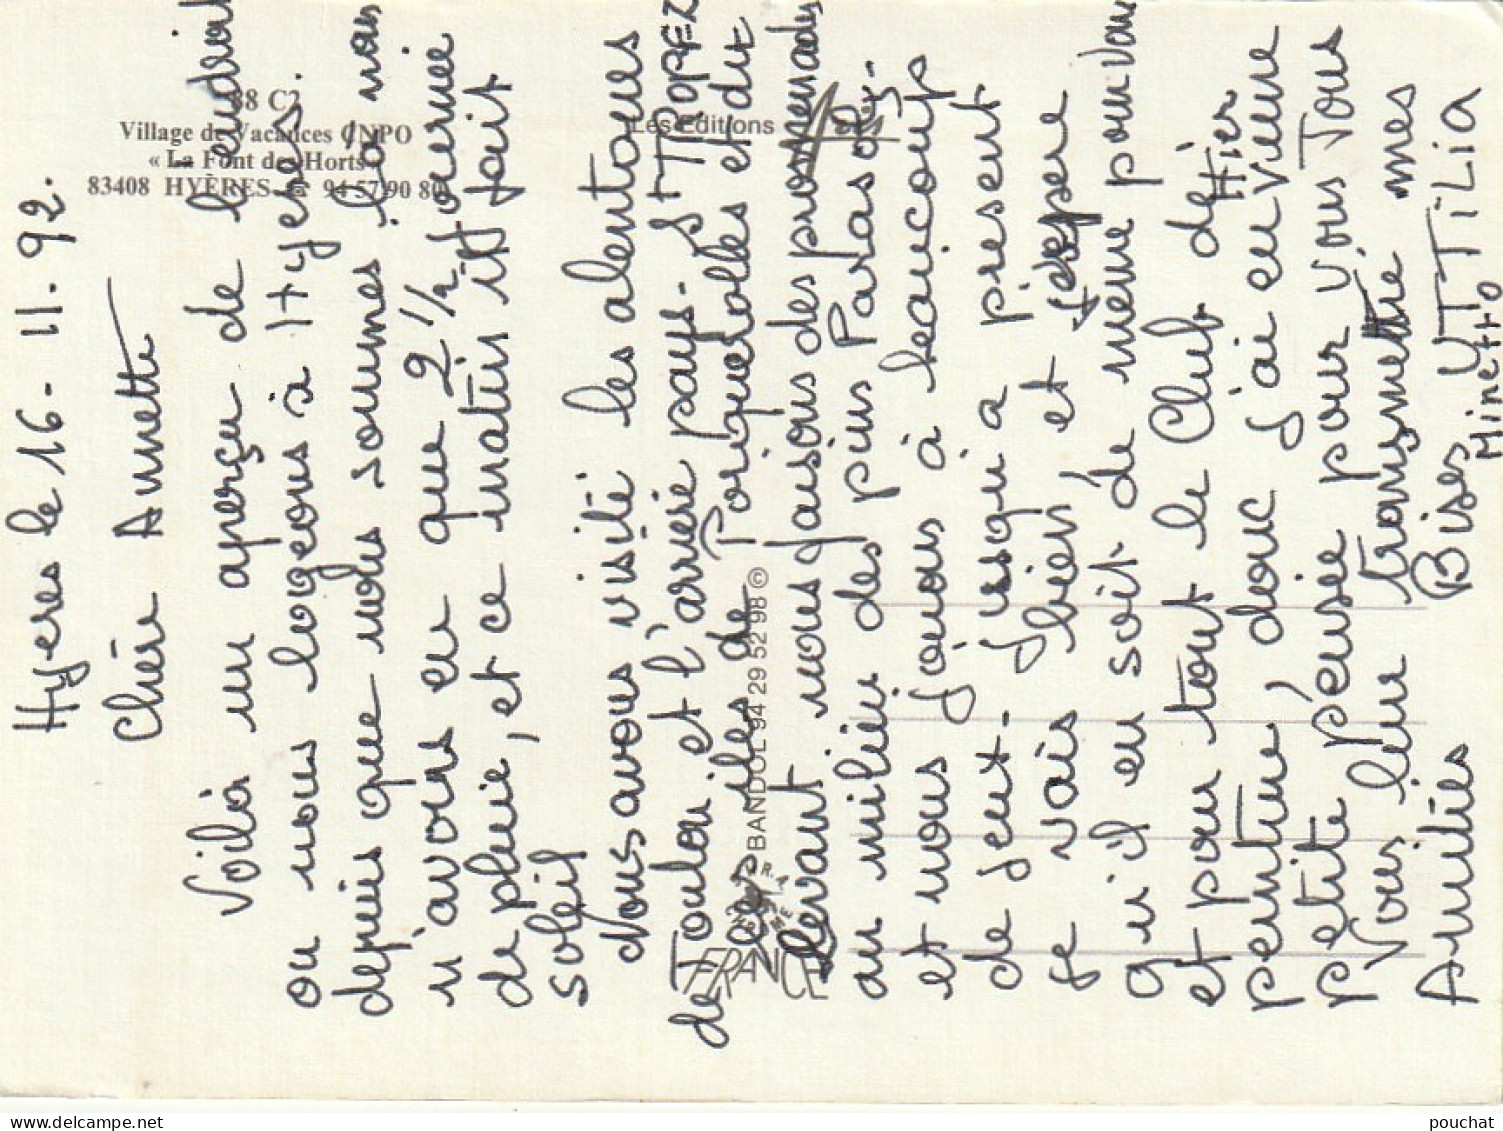 88 C2
Village de Vacances CNPO
« La Font des Horts »
83408 HYÈRES ☎ 94 57 90 80
Les Editions
BANDOL 94 29 52 98 ©
FRANCE
Hyeres le 16-11.92.
Chère Annette
Voilà un aperçu de l'endroit
ou nous logeons à Hyeres.
depuis que nous sommes là nous
n'avons eu que 2 1/2 journée
de pluie, et ce matin il fait
soleil
Nous avons visité les alentours
de Toulon et l'arrière pays. St TROPEZ
les iles de Porquerolles et du
levant nous faisons des promenades
au milieu des pins Parasols.
et nous jouons à beaucoup
de jeux. Jusqu'a présent
je vais bien, et j'espère
qu'il en soit de même pour vous
et pour tout le Club de
peinture, donc Hier j'ai eu une
petite pensée pour vous Tous
Vous leur transmettre mes
Amitiés Bises UTTiLiA
Minetto
pouchat